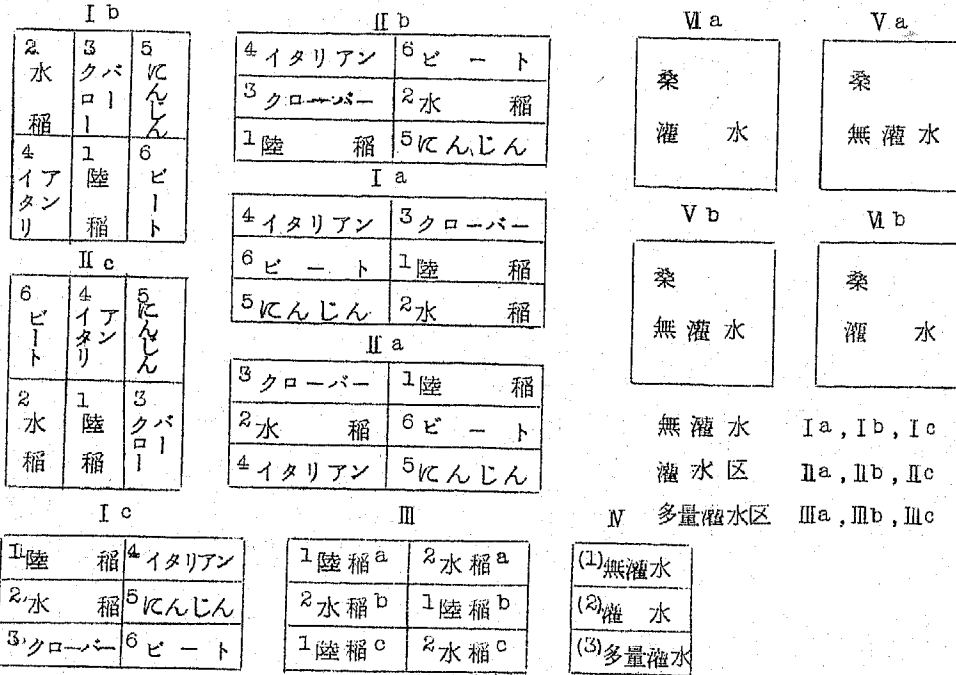 Ⅰb
2 水稲
3 クローバー
5 にんじん
4 イタリアン
1 陸稲
6 ビート
Ⅱc
6 ビート
4 イタリアン
5 にんじん
2 水稲
1 陸稲
3 クローバー
Ⅰc
1 陸稲 4 イタリアン
2 水稲 5 にんじん
3 クローバー 6 ビート
Ⅱb
4 イタリアン 6 ビート
3 クローバー 2 水稲
1 陸稲 5 にんじん
Ⅰa
4 イタリアン 3 クローバー
6 ビート 1 陸稲
5 にんじん 2 水稲
Ⅱa
3 クローバー 1 陸稲
2 水稲 6 ビート
4 イタリアン 5 にんじん
Ⅲ
1 陸稲a 2 水稲a
2 水稲b 1 陸稲b
1 陸稲c 2 水稲c
Ⅵa
桑
灌水
Ⅴa
桑
無灌水
Ⅴb
桑
無灌水
Ⅵb
桑
灌水
無灌水 Ⅰa,Ⅰb,Ⅰc
灌水区 Ⅱa,Ⅱb,Ⅱc
多量灌水区 Ⅲa,Ⅲb,Ⅲc
Ⅳ
(1)無灌水
(2)灌水
(3)多量灌水